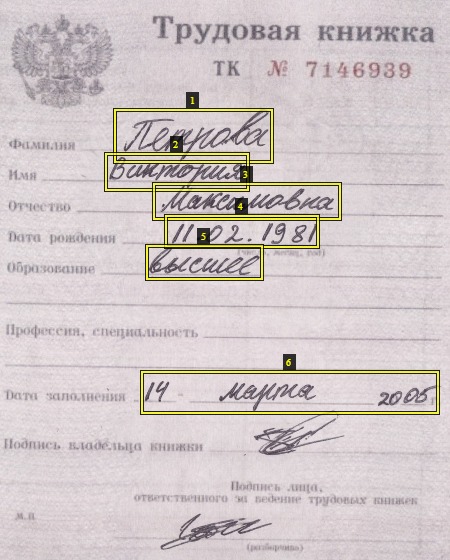 Трудовая книжка
ТК № 7146939
Фамилия Петрова
Имя Виктория
Отчество Максимовна
Дата рождения 11.02.1981
(число, месяц, год)
Образование высшее
Профессия, специальность
Дата заполнения 14 - марта 2005 г.
Подпись владельца книжки
Подпись лица,
ответственного за ведение трудовых книжек
М.П.
(разборчиво)
1
2
3
4
5
6